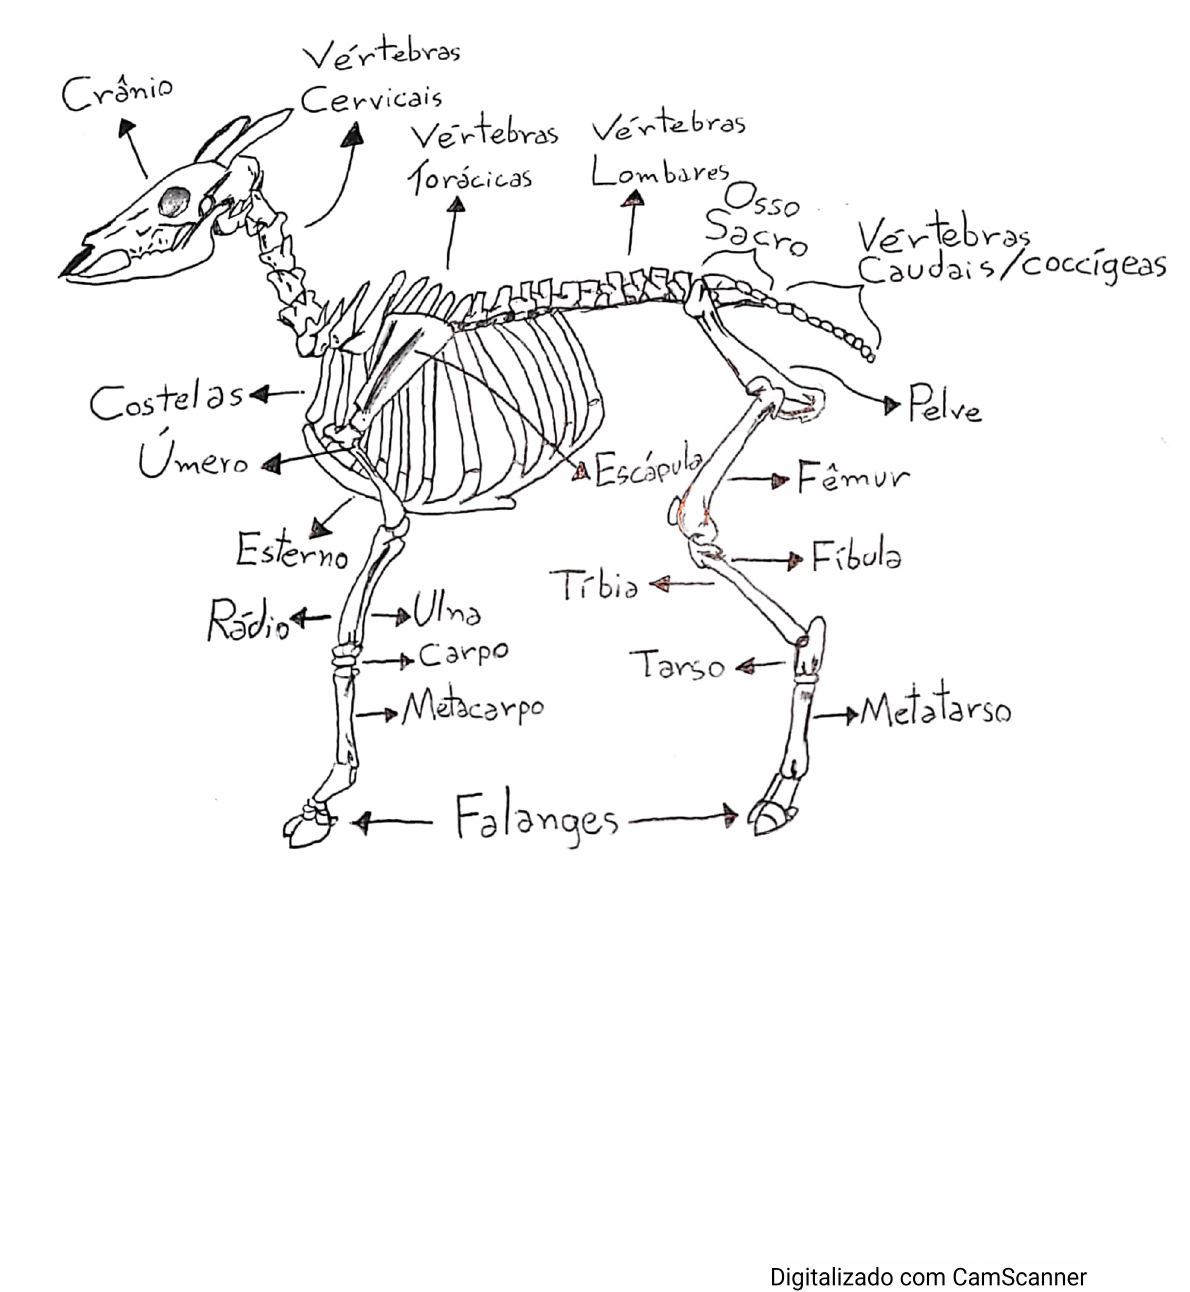 Crânio
Vértebras
Cervicais
Vértebras
Torácicas
Vértebras
Lombares
Osso
Sacro
Vértebras
Caudais/coccígeas
Costelas
Úmero
Esterno
Escápula
Pelve
Fêmur
Fíbula
Tíbia
Rádio
Ulna
Carpo
Metacarpo
Tarso
Metatarso
Falanges
Digitalizado com CamScanner